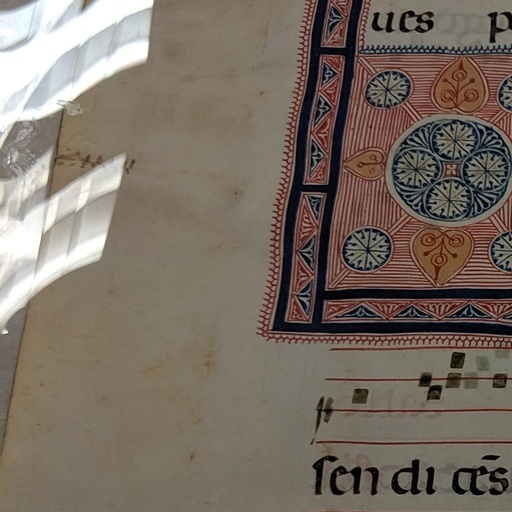 ues p
sen di cẽs